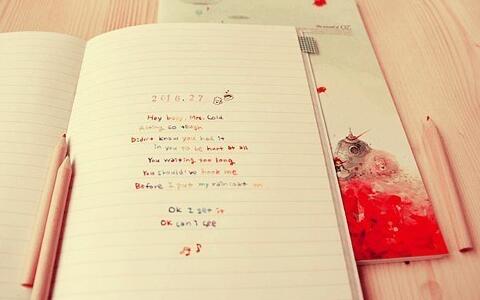 2016.27
Hey baby, Mrs. Cold
Acting so tough
Didn't know you had it
in you to be hurt at all
You waiting too long
You should've hook me
Before I put my raincoat on
OK I get it
OK can I see